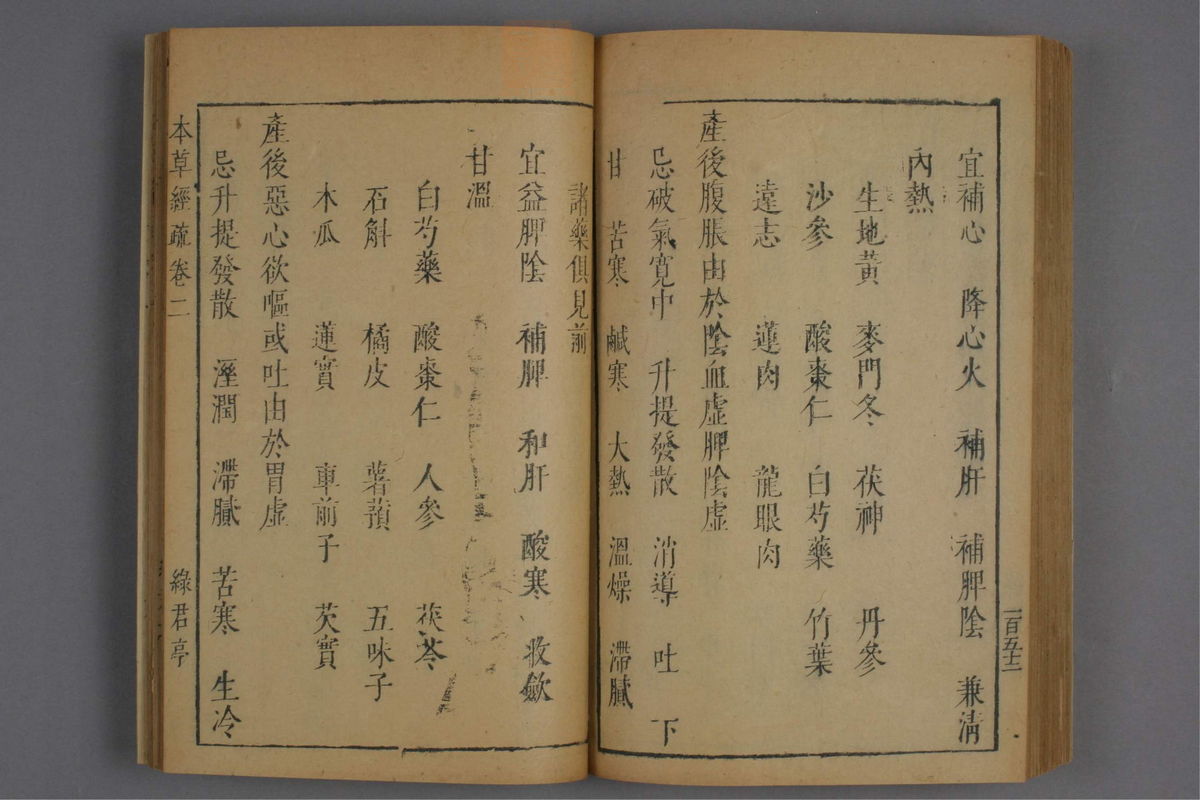 宜補心　降心火　補肝　補脾陰　兼淸
內熱
生地黃　麥門冬　茯神　丹參
沙參　酸棗仁　白芍藥　竹葉
遠志　蓮肉　龍眼肉
產後腹脹由於陰血虛脾陰虛
忌破氣寬中　升提發散　消導　吐　下
甘　苦寒　鹹寒　大熱　溫燥　滯膩
諸藥俱見前
宜益脾陰　補脾　和肝　酸寒　收斂
甘溫
白芍藥　酸棗仁　人參　茯苓
石斛　橘皮　薯蕷　五味子
木瓜　蓮實　車前子　芡實
產後惡心欲嘔或吐由於胃虛
忌升提發散　溼潤　滯膩　苦寒　生冷
本草經疏　卷二　綠君亭